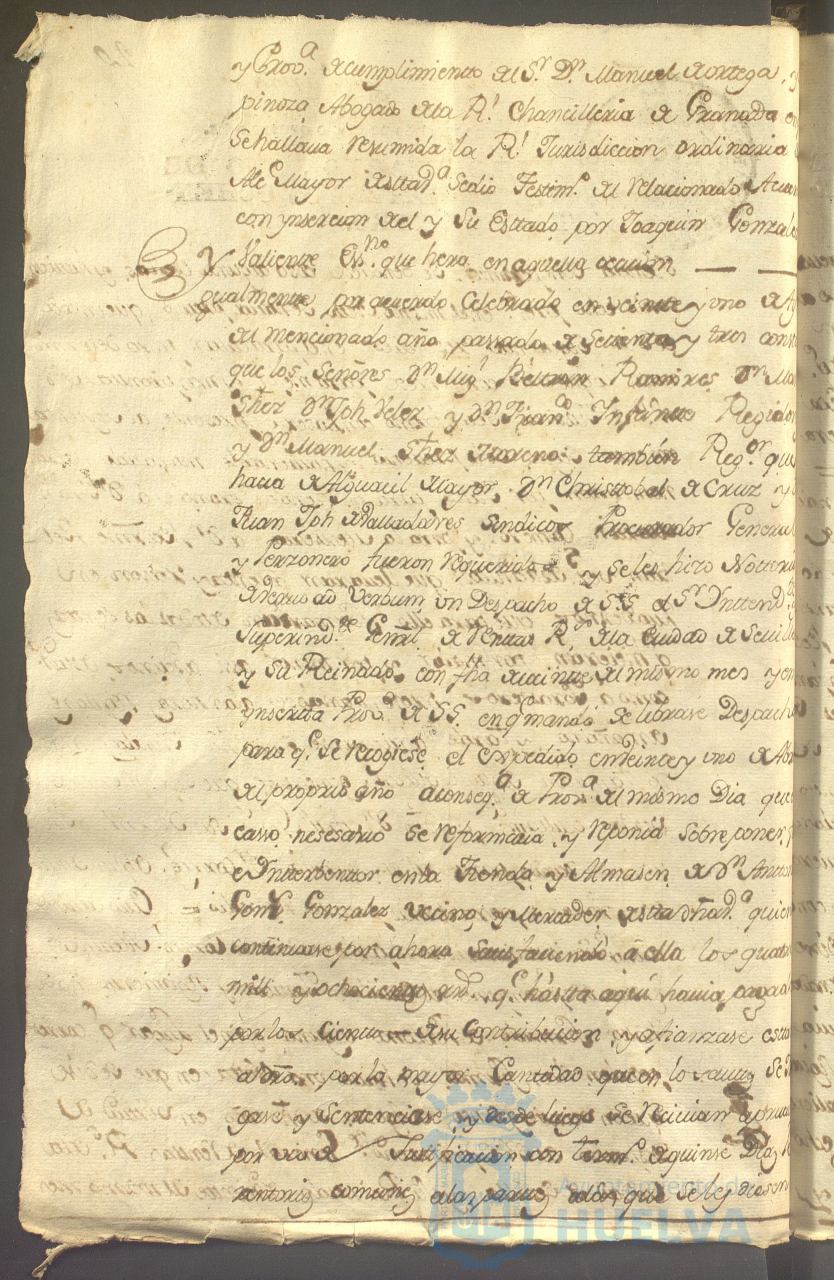 y Prov.ª de cumplimiento del S.r D.n Manuel de ortega, y
pinoza Abogado de la R.l Chancilleria de Granada en
Sehallava resumida la R.l Jurisdiccion ordinaria
Alc.e Mayor de estta d.ª Sedio Testim.º del relacionado
con ynsercion del y Su Esttado por Joaquin Gonzales
Valiente Ess.no que hera en aquella ocasion
Y gualmente por acuerdo Celebrado en veinte y uno de
del mencionado año passado de Settenta y tres
que los Señores D.n Mig.l Beltran Ramires D.n
Shez D.n Jph Velez y D.n Fran.co Infante Regidor
y D.n Manuel Shez Moreno tambien Reg.or que
hacia de Alguacil Mayor D.n Christtobal de Cruz y
Juan Jph de Valladares Sindicos Procurador General
y Perzonero fueron requeridos y se les hizo Nottorio
de Verbo ad Verbum un Despacho de S.S. el S.r Yntend.te
Superind.te Genrl de Renttas R.s de la Ciudad de Sevilla
y su Reinado con fha de veinte del mismo mes y en
ynsertta Prov.ª de S.S. en q.e mandó Se librase Despacho
para q.e Se recogiese el expedido en veinte y uno de Abr
del proprio año a conseq.ª de Prov.ª del mismo Dia que
casso nesesario Se reformaria y reponia Sobre poner
e Ynterbentor en la Tienda y Almasen de D.n Anton
Gom.s Gonzalez vecino y Mercader de estta d.ª quien
continuase por ahora Satisfaciendo a ella los quatro
mill y ochocientos rr.s q.e hastta aqui havia pagado
por los Cientos de su Contribucion y afianzase estta
ahora por la mayor Canttidad que en los auttos Se
gase y Sentenciase y desde luego Se recivian
por via de Justtificacion con term.º de quinse Dias
comunes a las parttes
Ayuntamiento de
HUELVA